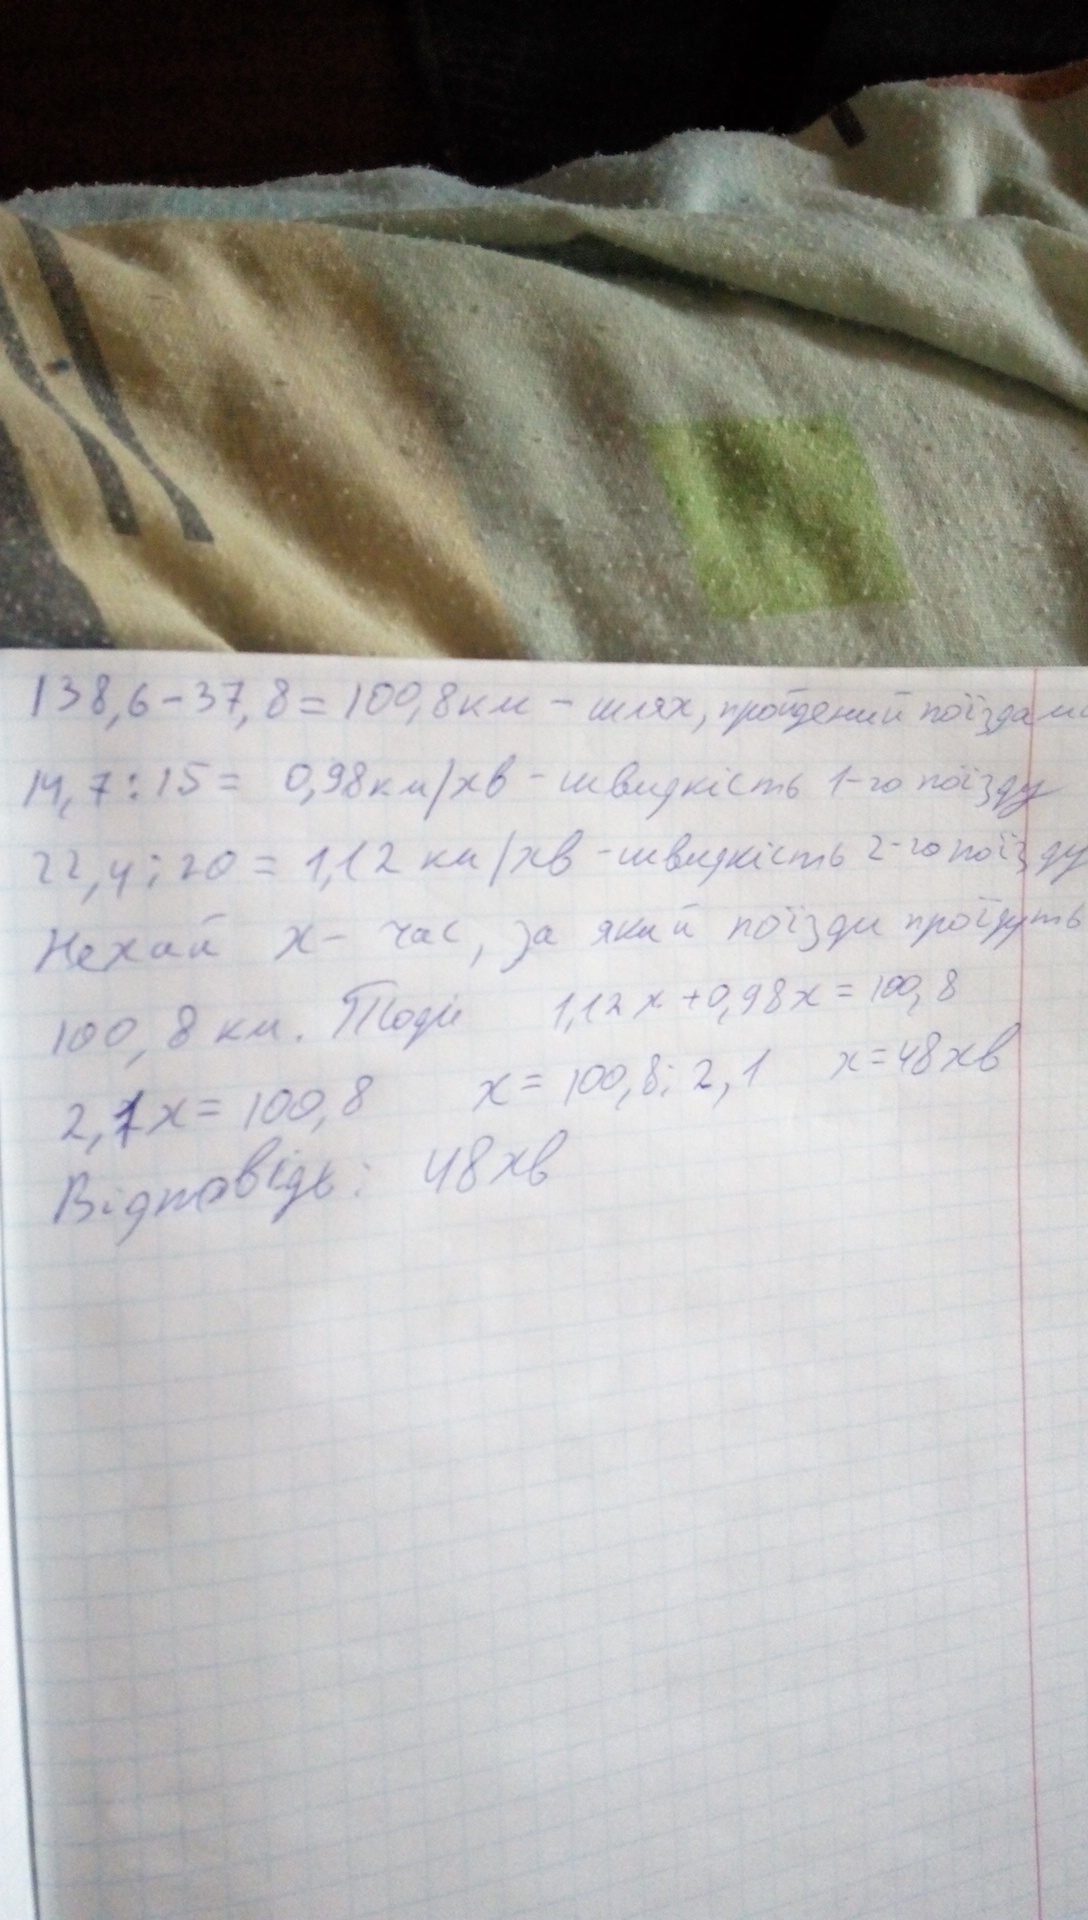 138,6-37,8=100,8км - шлях, пройдений поїздами
14,7:15= 0,98км/хв - швидкість 1-го поїзду
22,4:20=1,12 км/хв - швидкість 2-го поїзду
Нехай х- час, за який поїзди проїдуть
100,8 км. Тоді 1,12х+0,98х=100,8
2,1х=100,8 х=100,8:2,1 х=48хв
Відповідь: 48хв